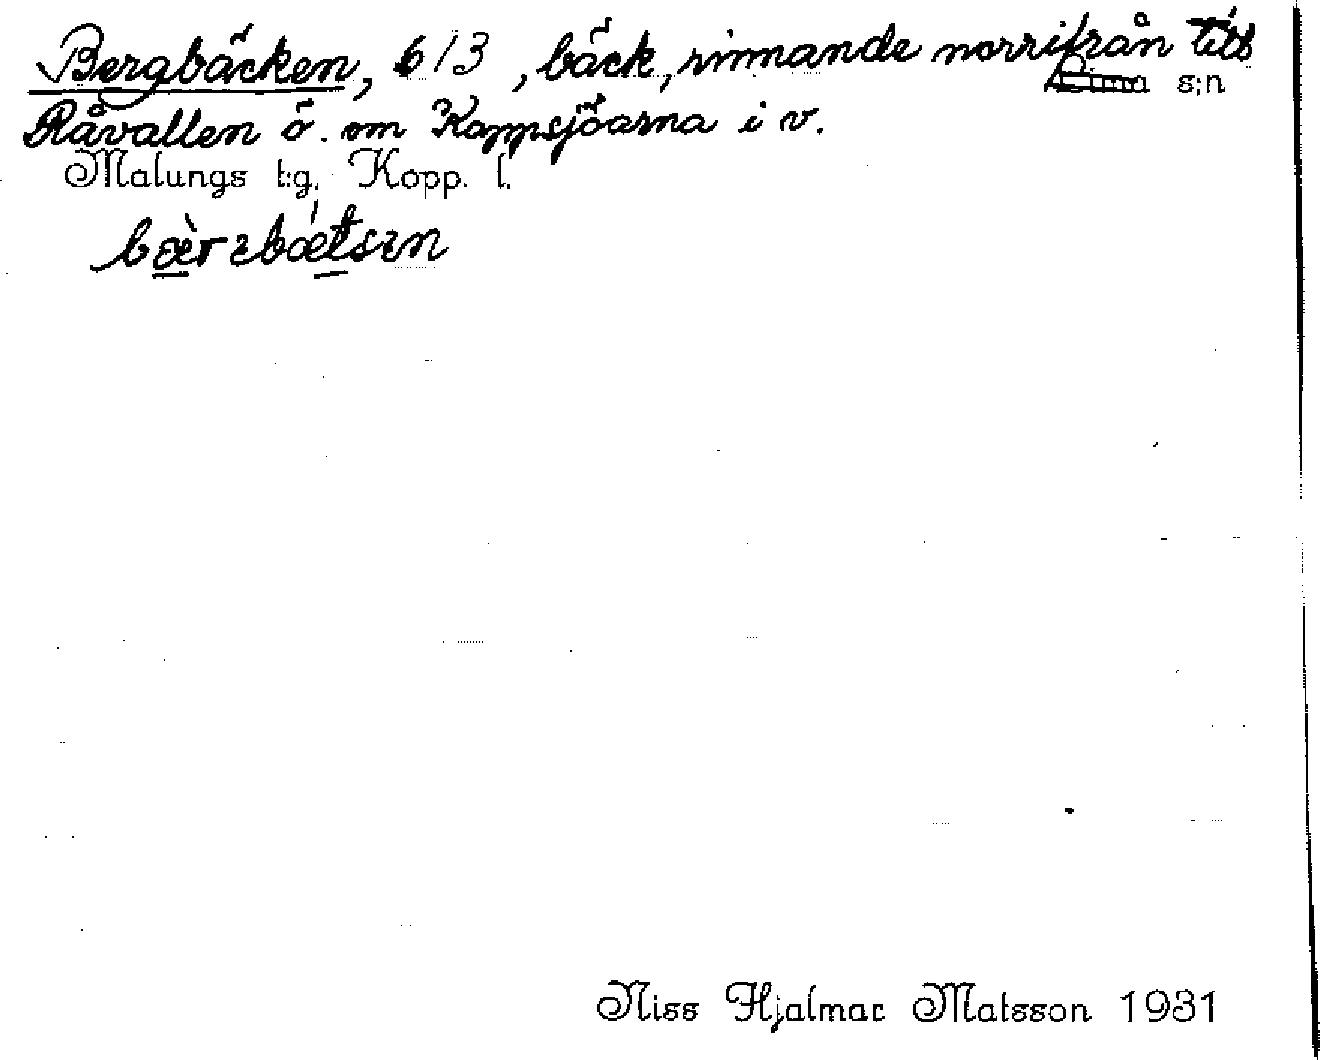 Bergbäcken, 6/3, bäck, rinnande norrifrån till
s:n
Råvallen ö. om Kappsjöarna i v.
Malungs t:g, Kopp. l.
bæ̀rzbǽtsɛn
Niss Hjalmar Matsson 1931